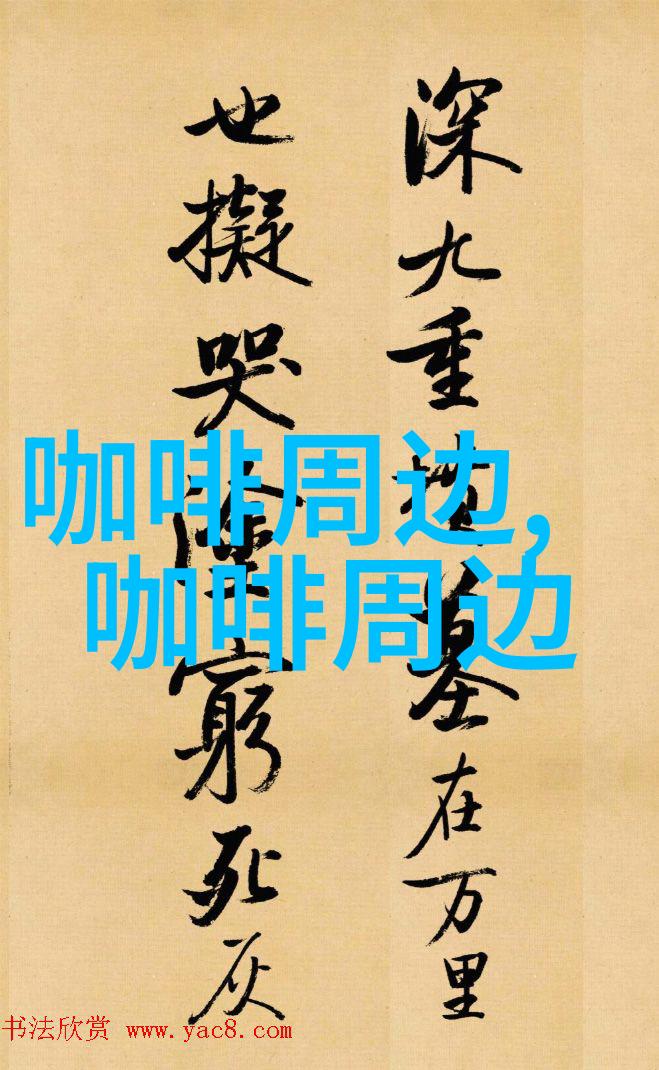 深九重墳墓在万里
也擬哭塗窮死灰
咖啡周边,
咖啡周边
书法欣赏 www.yac8.com